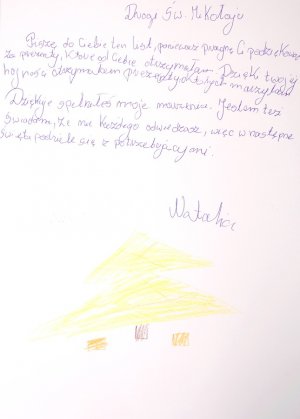 Drogi Św. Mikołaju
Piszę do Ciebie ten list, ponieważ pragnę Ci podziękować
za prezenty, które od Ciebie otrzymałam. Dzięki twojej
hojności otrzymałam
Dziękuję spełniłeś moje marzenia. Jestem też
świadoma, że nie każdego odwiedzasz, więc w następne
święta podzielę się z potrzebującymi.
Natalia